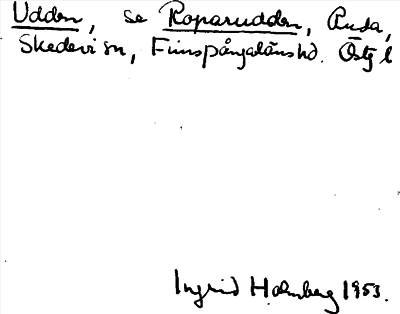 Udden, se Roparudden, Ruda,
Skedevi sn, Finspångaläns hd. Östg l
Ingrid Holmberg 1953.